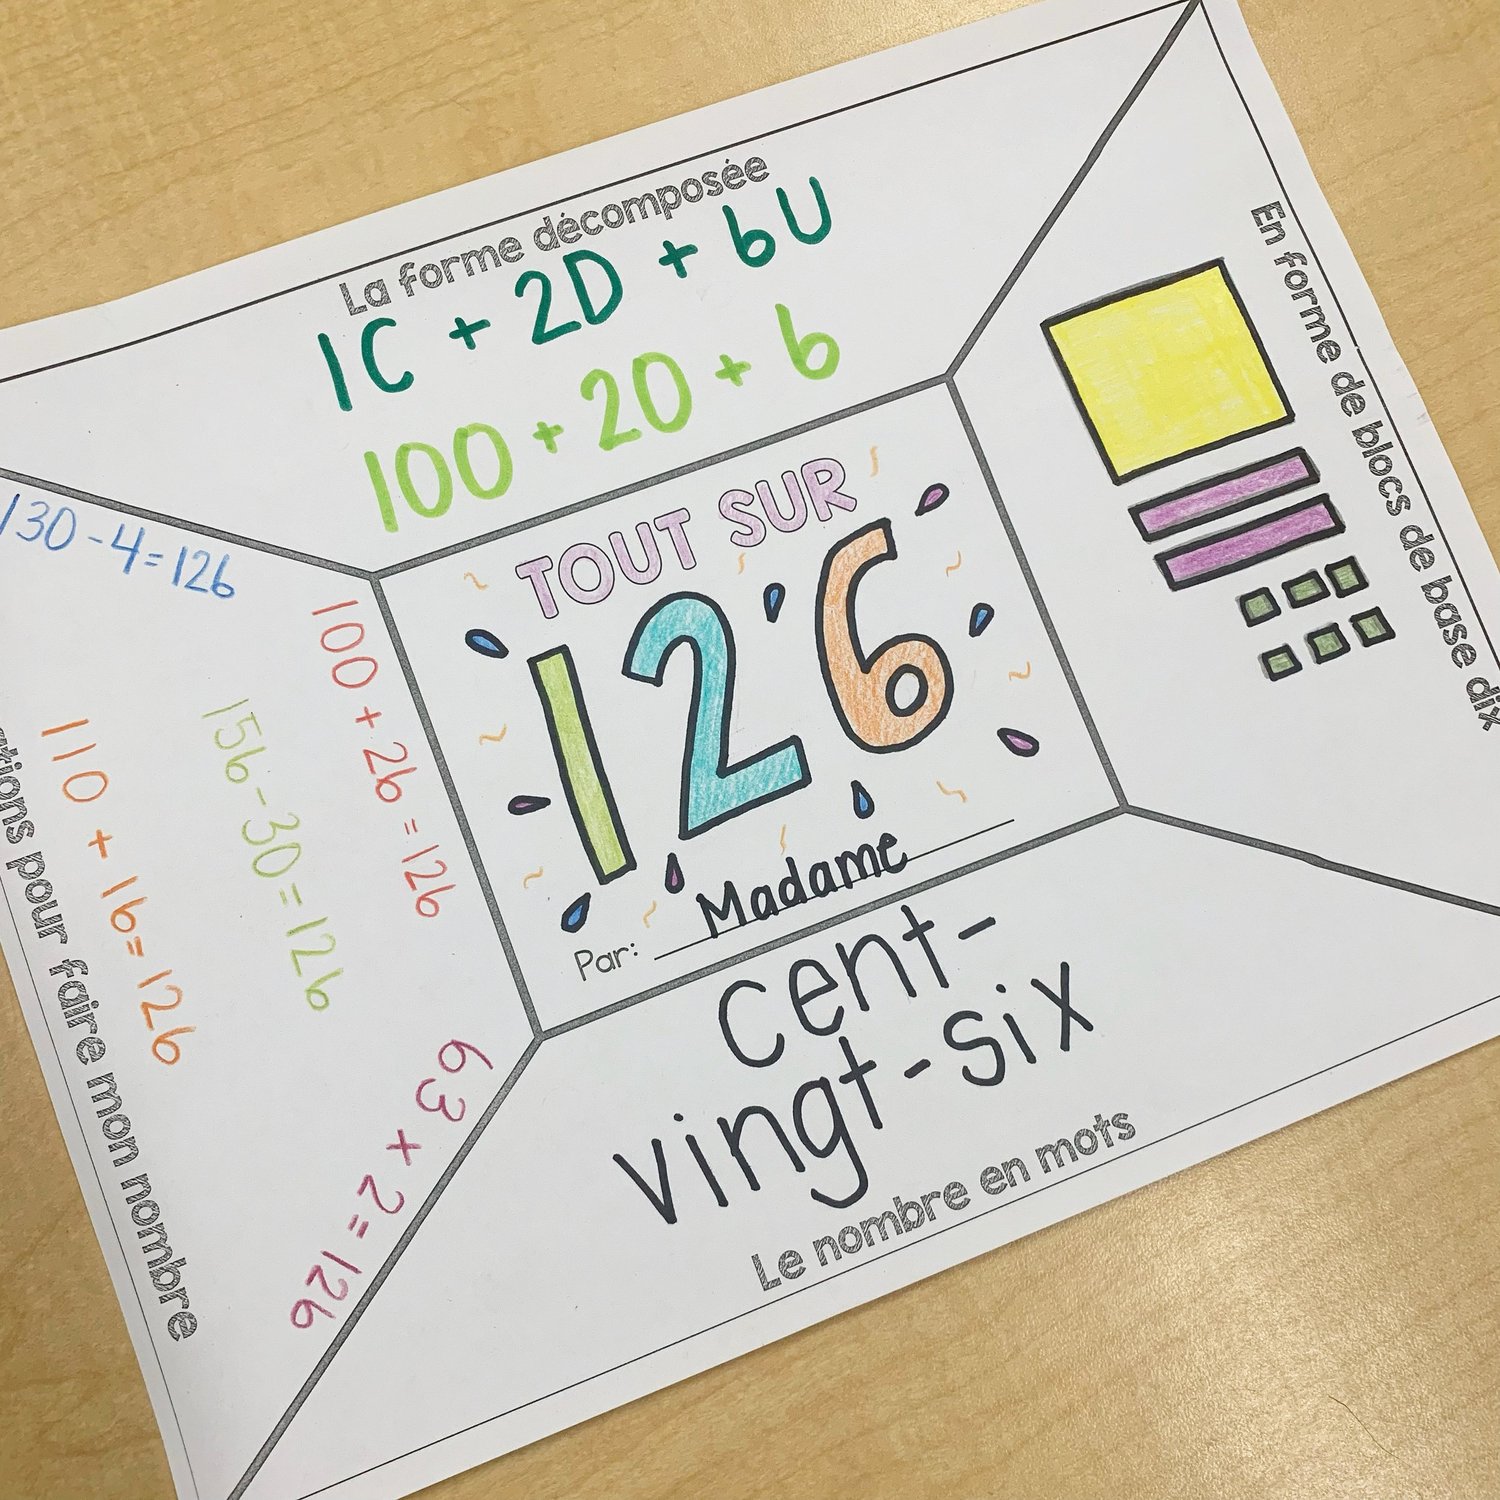 La forme décomposée
1C + 2D + 6U
100 + 20 + 6
En forme de blocs de base dix
TOUT SUR
126
Par: Madame
cent-
vingt-six
Le nombre en mots
130 - 4 = 126
100 + 26 = 126
156 - 30 = 126
110 + 16 = 126
63 x 2 = 126
pour faire mon nombre